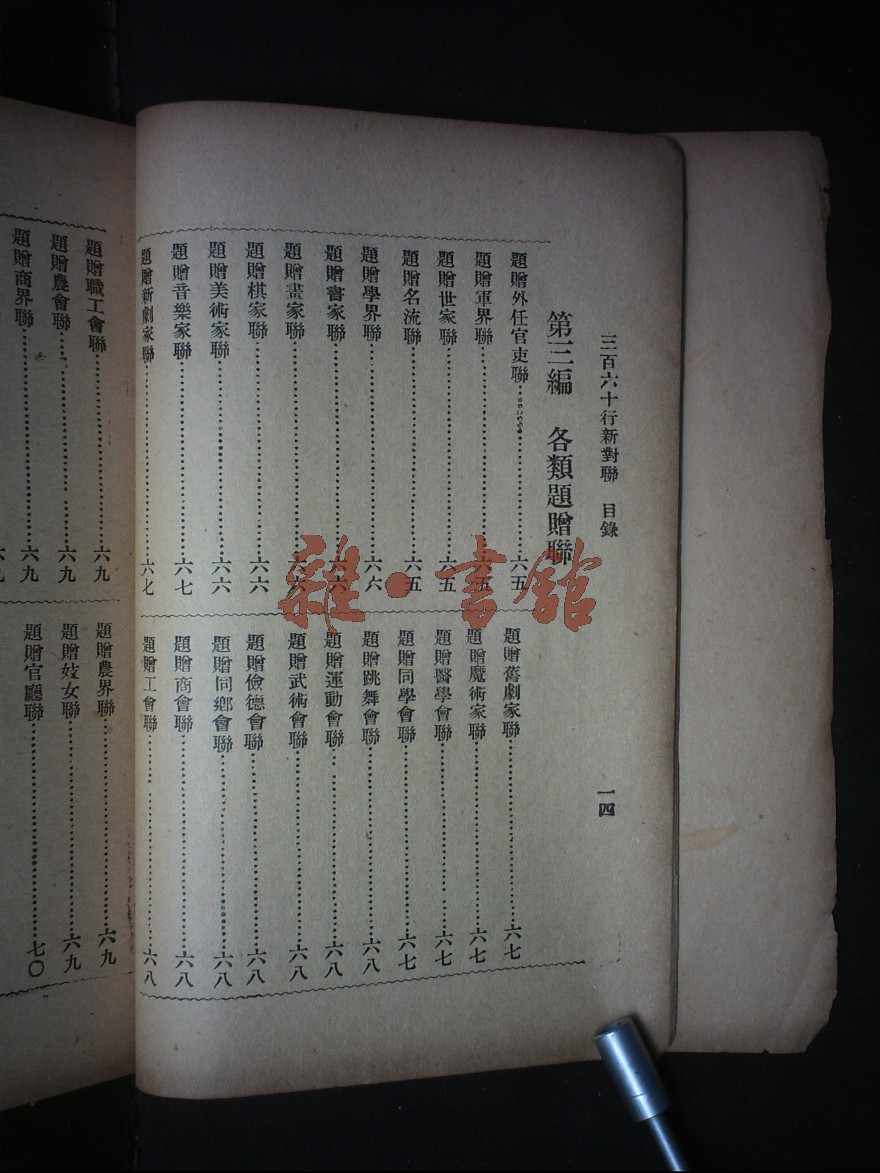 三百六十行新對聯 目錄
一四
第三編 各類題贈聯
題贈外任官吏聯⋯⋯六五
題贈軍界聯⋯⋯六五
題贈世家聯⋯⋯六五
題贈名流聯⋯⋯六五
題贈學界聯⋯⋯六六
題贈書家聯⋯⋯六六
題贈畫家聯⋯⋯六六
題贈棋家聯⋯⋯六六
題贈美術家聯⋯⋯六六
題贈音樂家聯⋯⋯六七
題贈新劇家聯⋯⋯六七
題贈舊劇家聯⋯⋯六七
題贈魔術家聯⋯⋯六七
題贈醫學會聯⋯⋯六七
題贈同學會聯⋯⋯六七
題贈跳舞會聯⋯⋯六八
題贈運動會聯⋯⋯六八
題贈武術會聯⋯⋯六八
題贈儉德會聯⋯⋯六八
題贈同鄉會聯⋯⋯六八
題贈商會聯⋯⋯六八
題贈工會聯⋯⋯六八
題贈職工會聯⋯⋯六九
題贈農會聯⋯⋯六九
題贈商界聯⋯⋯六九
題贈農界聯⋯⋯六九
題贈妓女聯⋯⋯六九
題贈官廳聯⋯⋯七〇
雜·書館